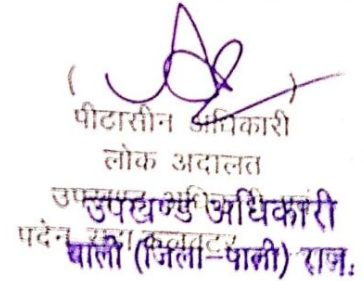 ( )
पीठासीन अधिकारी
लोक अदालत
उपखण्ड अधिकारी
उपखण्ड अधिकारी
पदेन
बाली (जिला-पाली) राज.